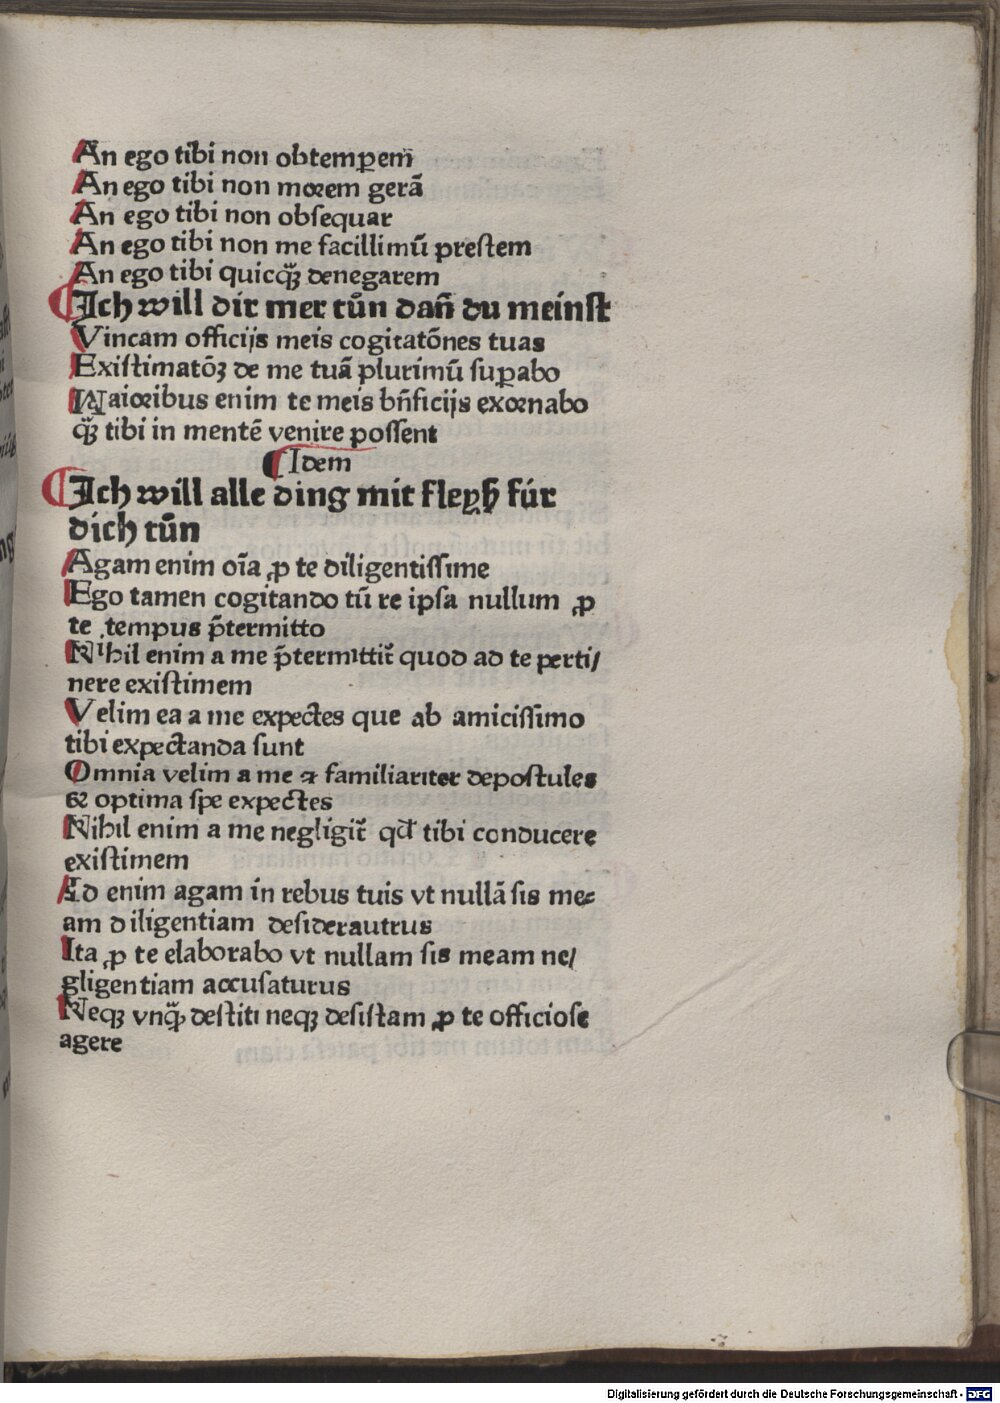 An ego tibi non obtemꝑem̄
An ego tibi non moꝛem gerā
An ego tibi non obſequar
An ego tibi non me facillimū preſtem
An ego tibi quicq̄ꝫ denegarem
¶Ich will dir mer tůn dañ du meinſt
Vincam officijs meis cogitatōnes tuas
Exiſtimatōꝫ de me tuā plurimū ſuꝑabo
Maioꝛibus enim te meis bn̄ficijs exoꝛnabo
q̄ꝫ tibi in mentē venire poſſent
¶Idem
¶Ich will alle ding mit fleyß fúr
dich tůn
Agam enim oīa ꝓ te diligentiſſime
Ego tamen cogitando tū re ipſa nullum ꝓ
te tempus p̄termitto
Nihil enim a me p̄termittit᷑ quod ad te perti/
nere exiſtimem
Velim ea a me expectes que ab amiciſſimo
tibi expectanda ſunt
Omnia velim a me ⁊ familiariter depoſtules
& optima ſpe expectes
Nihil enim a me negligit᷑ qd̄ tibi conducere
exiſtimem
Id enim agam in rebus tuis vt nullā ſis me⸗
am diligentiam deſiderautrus
Ita ꝓ te elaborabo vt nullam ſis meam ne/
gligentiam accuſaturus
Neqꝫ vnq̄ꝫ deſtiti neqꝫ deſiſtam ꝓ te officioſe
agere
Digitalisierung gefördert durch die Deutsche Forschungsgemeinschaft - DFG